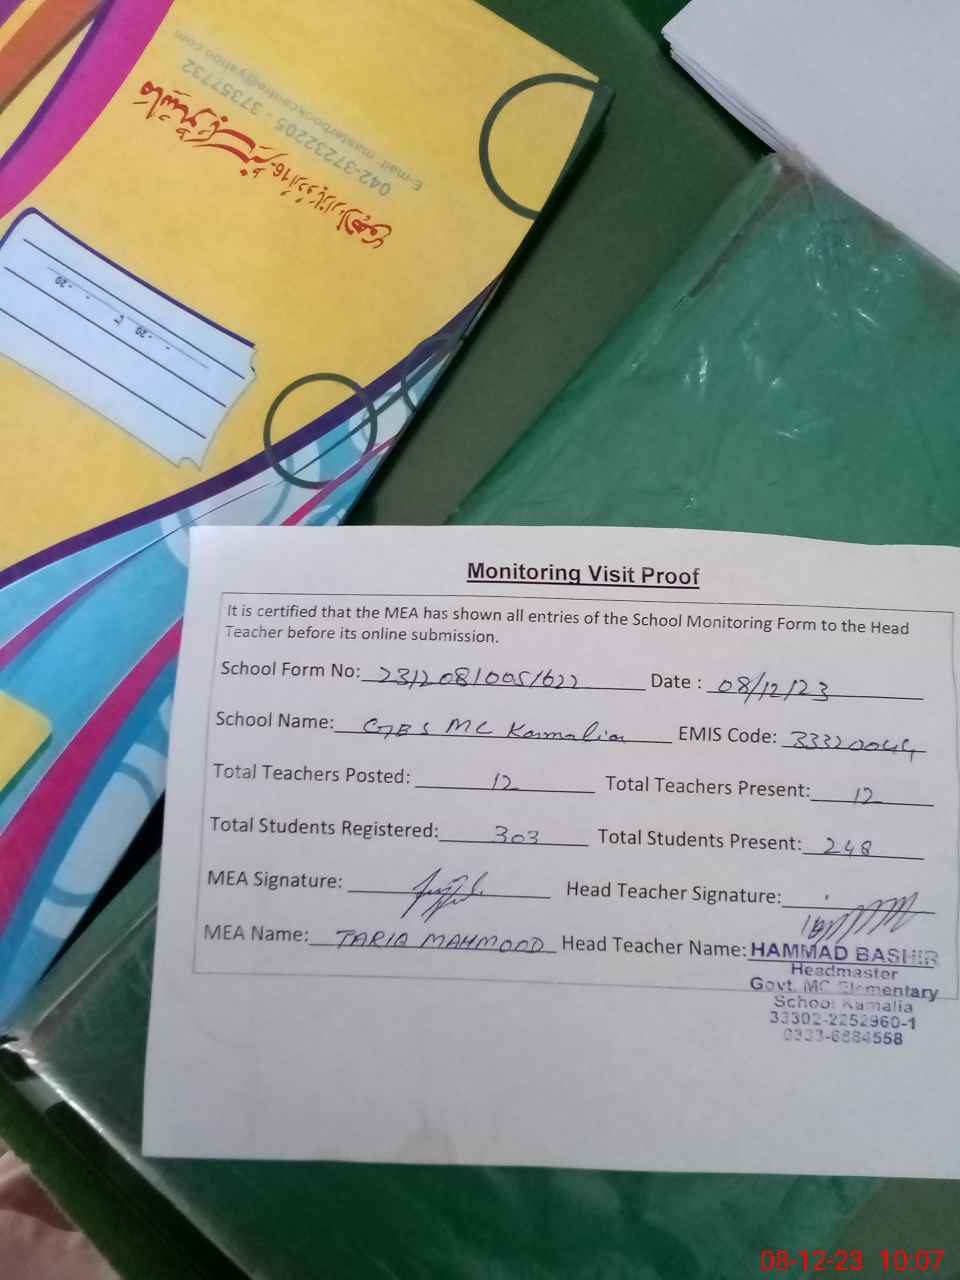 E-mail: masterbookcentre@yahoo.com
042-37232205 - 37357732
Monitoring Visit Proof
It is certified that the MEA has shown all entries of the School Monitoring Form to the Head
Teacher before its online submission.
School Form No: 23120810051622 Date : 08/12/23
School Name: GES MC Kamalia EMIS Code: 33320044
Total Teachers Posted: 12 Total Teachers Present: 12
Total Students Registered: 303 Total Students Present: 248
MEA Signature: Head Teacher Signature:
MEA Name: TARIQ MAHMOOD Head Teacher Name: HAMMAD BASHIR
Headmaster
Govt. MC Elementary
School Kamalia
33302-2252960-1
0333-6884558
08-12-23 10:07